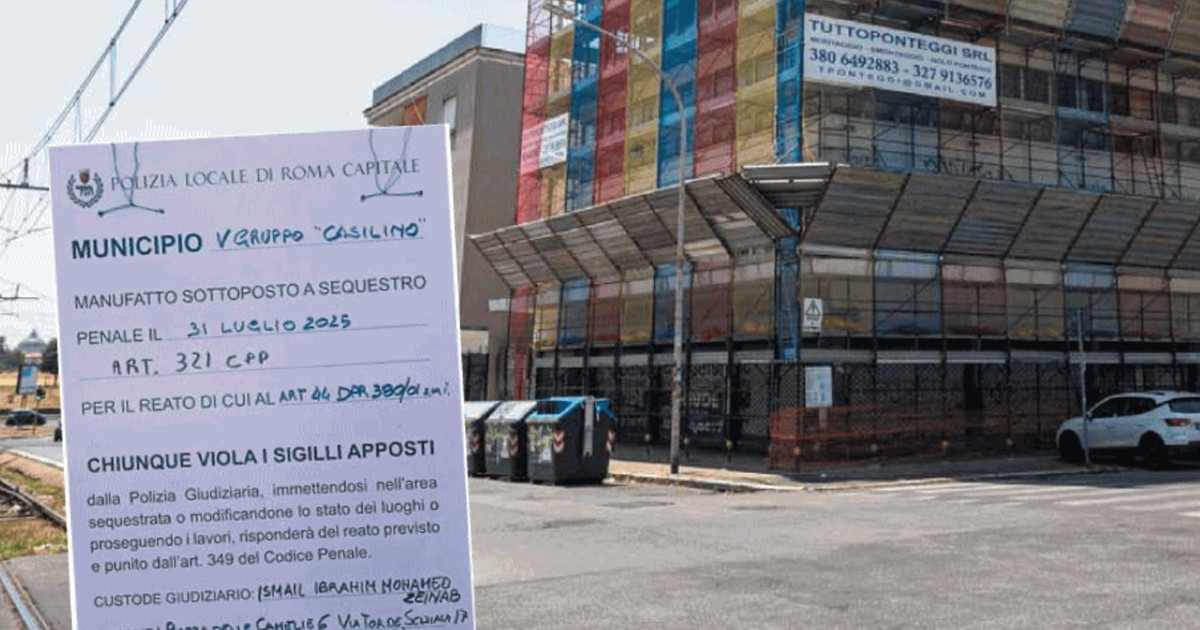 TUTTOPONTEGGI SRL
MONTAGGIO - SMONTAGGIO - NOLO PONTEGGI
380 6492883 - 327 9136576
TPONTEGGI@GMAIL.COM
POLIZIA LOCALE DI ROMA CAPITALE
MUNICIPIO V GRUPPO "CASILINO"
MANUFATTO SOTTOPOSTO A SEQUESTRO
PENALE IL 31 LUGLIO 2025
ART. 321 CPP
PER IL REATO DI CUI AL ART 44 DPR 380/01 s.m.i.
CHIUNQUE VIOLA I SIGILLI APPOSTI
dalla Polizia Giudiziaria, immettendosi nell'area
sequestrata o modificandone lo stato dei luoghi o
proseguendo i lavori, risponderà del reato previsto
e punito dall'art. 349 del Codice Penale.
CUSTODE GIUDIZIARIO: ISMAIL IBRAHIM MOHAMED
ZEINAB
CAMELIE 6 VIA TOR DE SCHIAVI